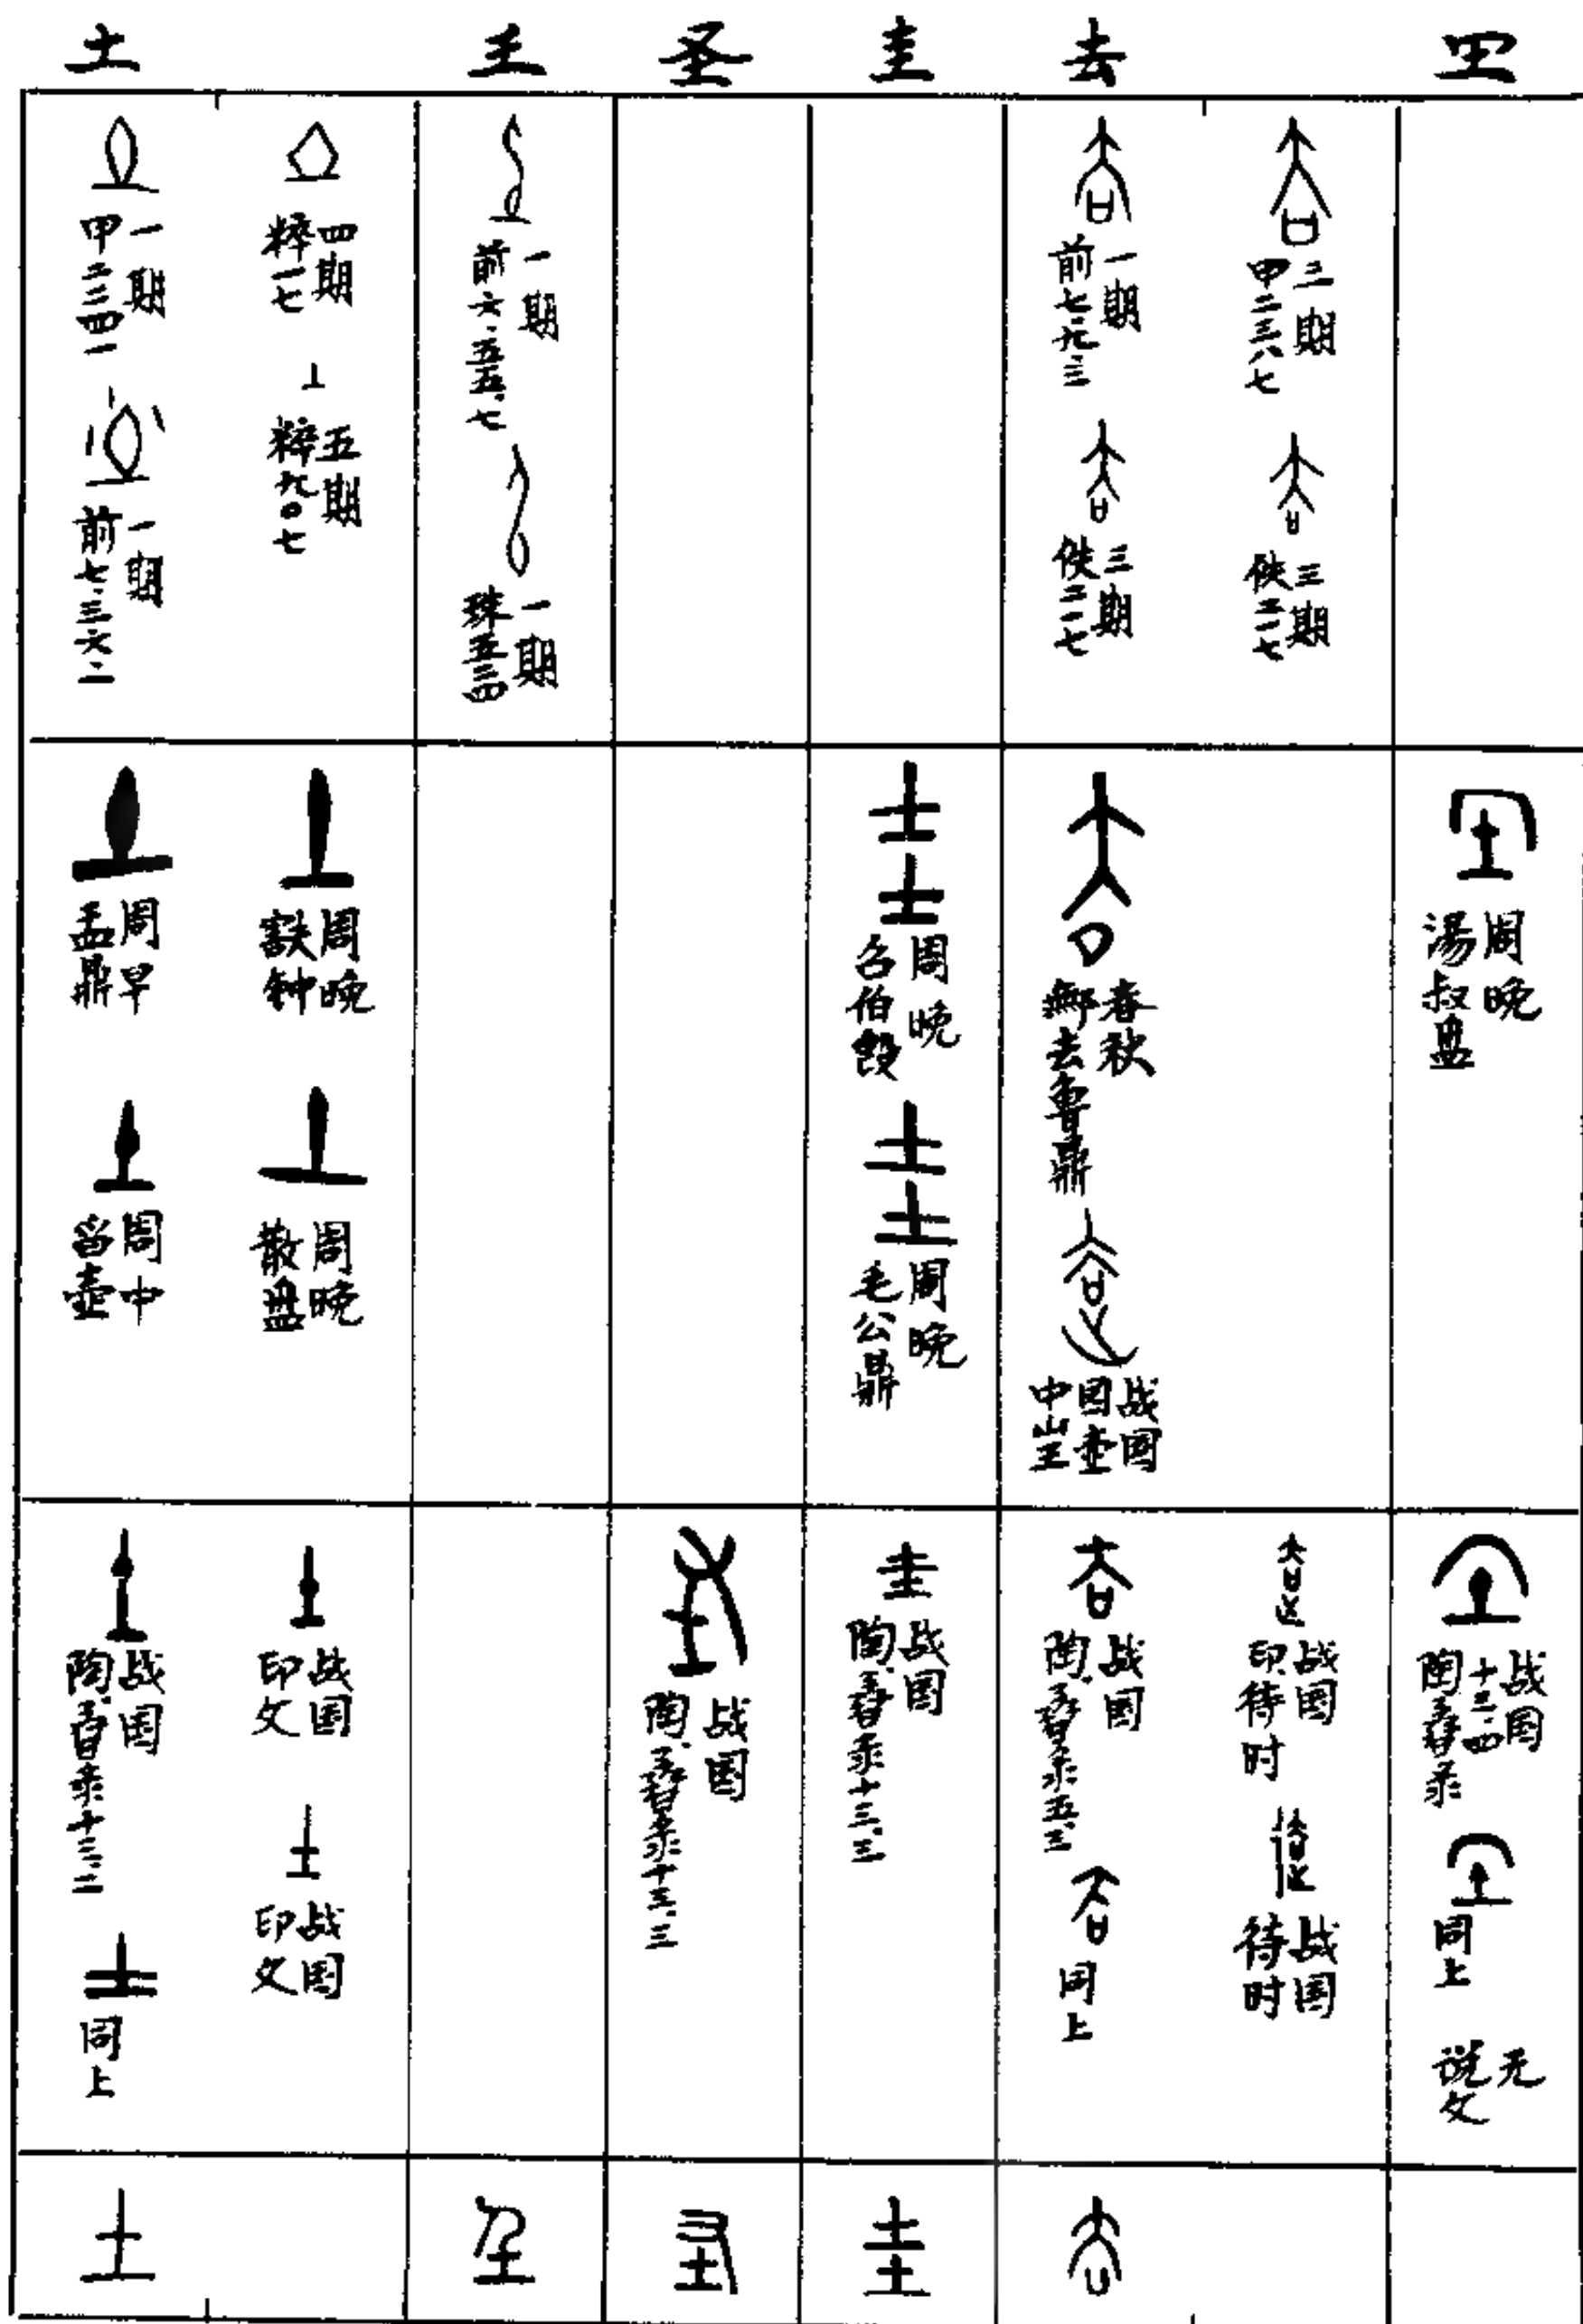 土 𡈼 圣 圭 去 𡆧
一期
甲二三四一
一期
前七·三六·二
四期
粹一七
五期
粹九〇七
一期
前六·五五·七
一期
珠五三四
一期
前七·九·三
三期
佚三一七
二期
甲二三六七
三期
佚三一七
周早
盂鼎
周中
曶壶
周晚
㝬钟
周晚
散盘
周晚
召伯𣪘
周晚
毛公鼎
春秋
鄦去鲁鼎
战国
圆壶
中山王
周晚
湯叔盘
战国
陶𦥯录十三·二
同上
战国
印文
战国
印文
战国
陶𦥯录十三·三
战国
陶𦥯录十三·三
战国
陶𦥯录五·三
同上
战国
印待时
战国
待时
战国
十三·四
同上
无
说文